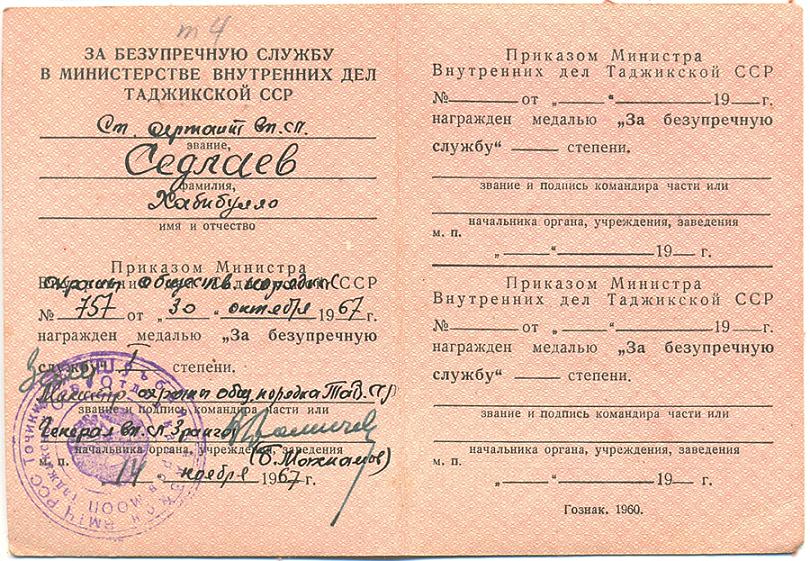 т 4
ЗА БЕЗУПРЕЧНУЮ СЛУЖБУ
В МИНИСТЕРСТВЕ ВНУТРЕННИХ ДЕЛ
ТАДЖИКСКОЙ ССР
Ст. сержант вн. сл.
звание,
Седлаев
фамилия,
Хабибулло
имя и отчество
Приказом Министра
охраны обществ. порядка ССР
№ 757 от „ 30 “ октября 1967 г.
награжден медалью „За безупречную
службу“ I степени.
Министр охраны общ. порядка Тад. ССР
звание и подпись командира части или
Генерал вн. сл. 3 ранга
начальника органа, учреждения, заведения
м. п.
14 ноября 1967 г.
Приказом Министра
Внутренних дел Таджикской ССР
№ от „ “ 19 г.
награжден медалью „За безупречную
службу“ степени.
звание и подпись командира части или
начальника органа, учреждения, заведения
м. п.
„ “ 19 г.
Приказом Министра
Внутренних дел Таджикской ССР
№ от „ “ 19 г.
награжден медалью „За безупречную
службу“ степени.
звание и подпись командира части или
начальника органа, учреждения, заведения
м. п.
„ “ 19 г.
Гознак. 1960.